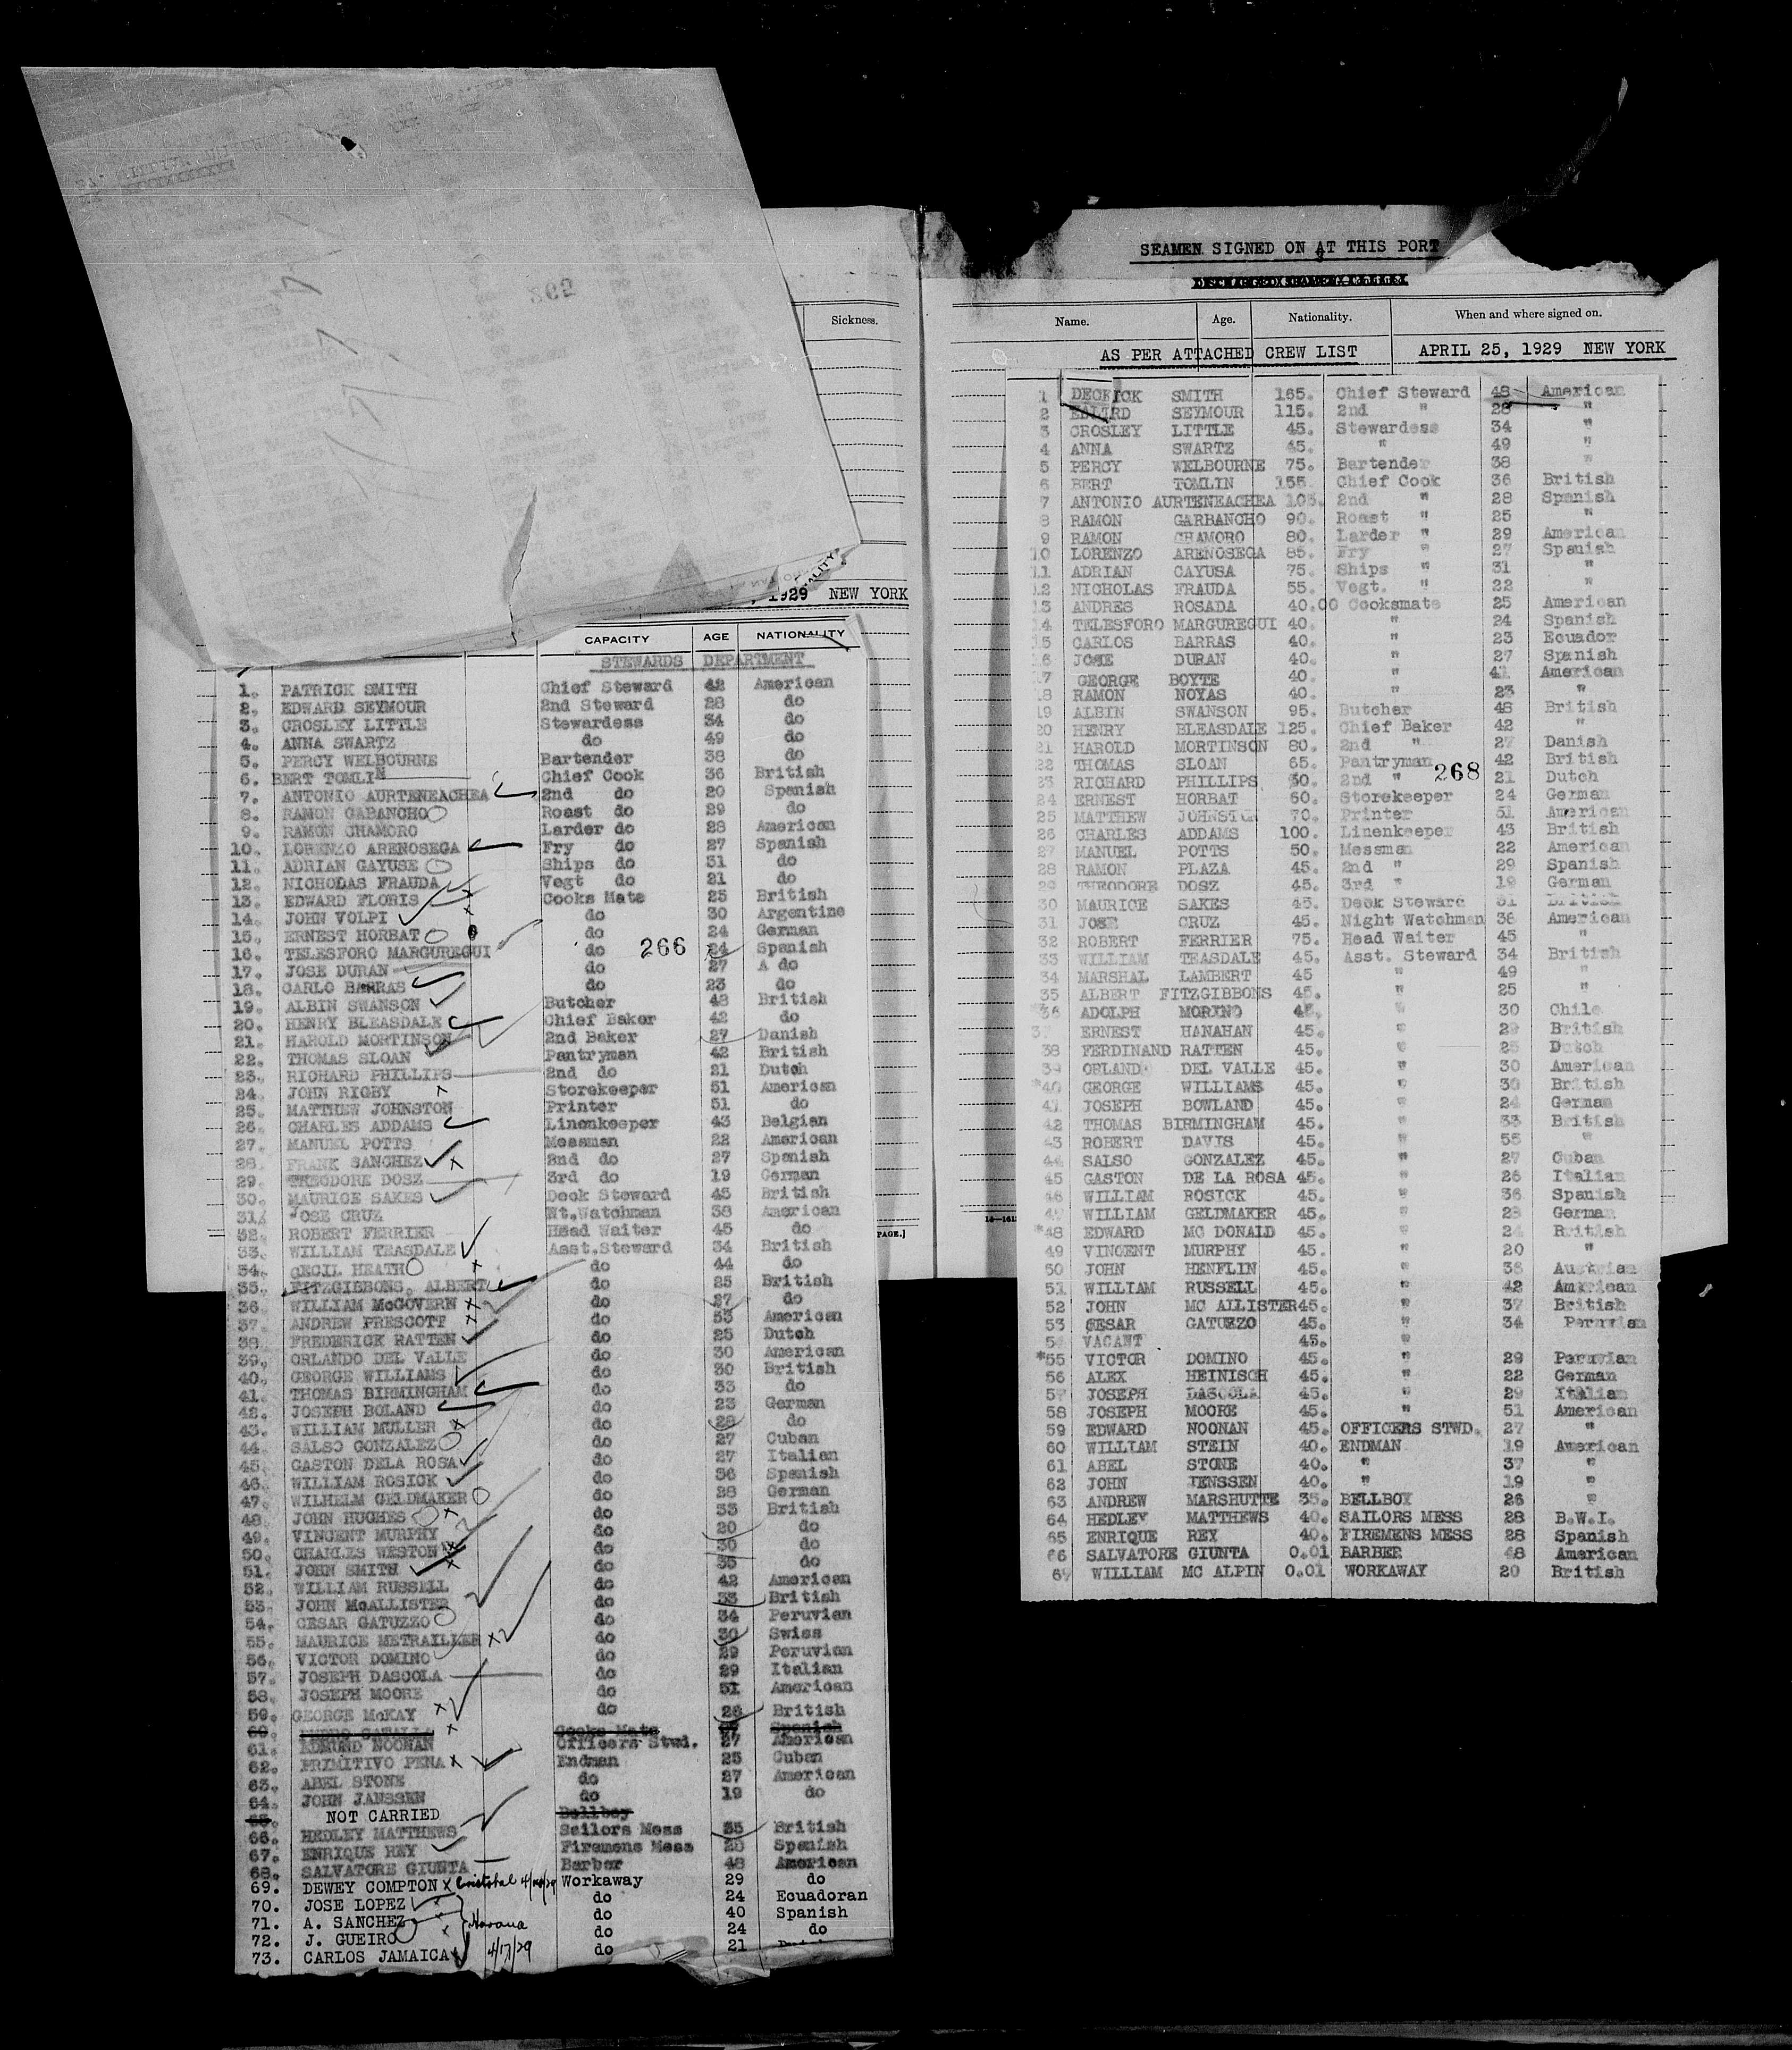 265
Sickness.
1929 NEW YORK
CAPACITY AGE NATIONALITY
STEWARDS DEPARTMENT
1. PATRICK SMITH Chief Steward 42 American
2. EDWARD SEYMOUR 2nd Steward 28 do
3. CROSLEY LITTLE Stewardess 34 do
4. ANNA SWARTZ do 49 do
5. PERCY WELBOURNE Bartender 38 do
6. BERT TOMLIN Chief Cook 36 British
7. ANTONIO AURTENEACHEA 2nd do 20 Spanish
8. RAMON GABANCHO Roast do 29 do
9. RAMON CHAMORO Larder do 28 American
10. LORENZO ARENOSEGA Fry do 27 Spanish
11. ADRIAN GAYUSE Ships do 31 do
12. NICHOLAS FRAUDA Vegt do 21 do
13. EDWARD FLORIS Cooks Mate 25 British
14. JOHN VOLPI do 30 Argentine
15. ERNEST HORBAT do 24 German
16. TELESFORO MARGUREGUI do 24 Spanish
266
17. JOSE DURAN do 27 A do
18. CARLO BARRAS do 23 do
19. ALBIN SWANSON Butcher 48 British
20. HENRY BLEASDALE Chief Baker 42 do
21. HAROLD MORTINSON 2nd Baker 27 Danish
22. THOMAS SLOAN Pantryman 42 British
23. RICHARD PHILLIPS 2nd do 21 Dutch
24. JOHN RIGBY x Storekeeper 51 American
25. MATTHEW JOHNSTON Printer 51 do
26. CHARLES ADDAMS Linenkeeper 43 Belgian
27. MANUEL POTTS Messman 22 American
28. FRANK SANCHEZ x 2nd do 27 Spanish
29. THEODORE DOSZ 3rd do 19 German
30. MAURICE SAKES Deck Steward 45 British
31. JOSE CRUZ Nt.Watchman 38 American
32. ROBERT FERRIER Head Waiter 45 do
33. WILLIAM TEASDALE Asst.Steward 34 British
34. CECIL HEATH x do 44 do
35. FITZGIBBONS, ALBERT do 25 British
36. WILLIAM McGOVERN x do 27 do
37. ANDREW PRESCOTT x do 53 American
38. FREDERICK RATTEN do 25 Dutch
39. ORLANDO DEL VALLE do 30 American
40. GEORGE WILLIAMS do 30 British
41. THOMAS BIRMINGHAM do 33 do
42. JOSEPH BOLAND do 23 German
43. WILLIAM MULLER x do 28 do
44. SALSO GONZALEZ do 27 Cuban
45. GASTON DELA ROSA do 27 Italian
46. WILLIAM ROSICK do 36 Spanish
47. WILHELM GELDMAKER do 28 German
48. JOHN HUGHES x do 33 British
49. VINCENT MURPHY do 20 do
50. CHARLES WESTON x do 30 do
51. JOHN SMITH x do 35 do
52. WILLIAM RUSSELL do 42 American
53. JOHN McALLISTER do 33 British
54. CESAR GATUZZO do 34 Peruvian
55. MAURICE METRAILLER x do 30 Swiss
56. VICTOR DOMINO do 29 Peruvian
57. JOSEPH DASCOLA do 29 Italian
58. JOSEPH MOORE do 51 American
59. GEORGE McKAY x do 26 British
60. x Cooks Mate Spanish
61. EDMUND NOONAN Officers Stwd. 27 American
62. PRIMITIVO PENA x Endman 25 Cuban
63. ABEL STONE do 27 American
64. JOHN JANSSEN do 19 do
65. NOT CARRIED Bellboy
66. HEDLEY MATTHEWS Sailors Mess 35 British
67. ENRIQUE REY Firemens Mess 28 Spanish
68. SALVATORE GIUNTA Barber 48 American
69. DEWEY COMPTON x Cristobal Workaway 29 do
70. JOSE LOPEZ x do 24 Ecuadoran
71. A. SANCHEZ x Havana do 40 Spanish
72. J. GUEIRO x do 24 do
73. CARLOS JAMAICA 4/17/29 do 21
SEAMEN SIGNED ON AT THIS PORT
Name. Age. Nationality. When and where signed on.
AS PER ATTACHED CREW LIST APRIL 25, 1929 NEW YORK
1 SMITH 165. Chief Steward 48 American
2 SEYMOUR 115. 2nd " 28 "
3 CROSLEY LITTLE 45. Stewardess 34 "
4 ANNA SWARTZ 45. " 49 "
5 PERCY WELBOURNE 75. Bartender 38 "
6 BERT TOMLIN 155. Chief Cook 36 British
7 ANTONIO AURTENEACHEA 105. 2nd " 28 Spanish
8 RAMON GARBANCHO 90. Roast " 25 "
9 RAMON CHAMORO 80. Larder " 29 American
10 LORENZO ARENOSEGA 85. Fry " 27 Spanish
11 ADRIAN CAYUSA 75. Ships " 31 "
12 NICHOLAS FRAUDA 55. Vegt. " 22 "
13 ANDRES ROSADA 40.00 Cooksmate 25 American
14 TELESFORO MARGUREGUI 40. " 24 Spanish
15 CARLOS BARRAS 40. " 23 Ecuador
16 JOSE DURAN 40. " 27 Spanish
17 GEORGE BOYTE 40. " 41 American
18 RAMON NOYAS 40. " 23 "
19 ALBIN SWANSON 95. Butcher 48 British
20 HENRY BLEASDALE 125. Chief Baker 42 "
21 HAROLD MORTINSON 80. 2nd " 27 Danish
22 THOMAS SLOAN 65. Pantryman 42 British
268
23 RICHARD PHILLIPS 50. 2nd " 21 Dutch
24 ERNEST HORBAT 60. Storekeeper 24 German
25 MATTHEW JOHNSTON 70. Printer 51 American
26 CHARLES ADDAMS 100. Linenkeeper 43 British
27 MANUEL POTTS 50. Messman 22 American
28 RAMON PLAZA 45. 2nd " 29 Spanish
29 THEODORE DOSZ 45. 3rd " 19 German
30 MAURICE SAKES 45. Deck Steward 51 British
31 JOSE CRUZ 45. Night Watchman 36 American
32 ROBERT FERRIER 75. Head Waiter 45 "
33 WILLIAM TEASDALE 45. Asst. Steward 34 British
34 MARSHAL LAMBERT 45 " 49 "
35 ALBERT FITZGIBBONS 45. " 25 "
*36 ADOLPH MORINO 45. " 30 Chile
37 ERNEST HANAHAN 45. " 29 British
38 FERDINAND RATTEN 45. " 25 Dutch
39 ORLANDO DEL VALLE 45. " 30 American
*40 GEORGE WILLIAMS 45. " 30 British
41 JOSEPH BOWLAND 45. " 24 German
42 THOMAS BIRMINGHAM 45. " 33 British
43 ROBERT DAVIS 45. " 55 "
44 SALSO GONZALEZ 45. " 27 Cuban
45 GASTON DE LA ROSA 45. " 26 Italian
46 WILLIAM ROSICK 45. " 36 Spanish
47 WILLIAM GELDMAKER 45. " 28 German
*48 EDWARD MC DONALD 45. " 24 British
49 VINCENT MURPHY 45. " 20 "
50 JOHN HENFLIN 45. " 38 Austrian
51 WILLIAM RUSSELL 45. " 42 American
52 JOHN MC ALLISTER 45. " 37 British
53 CESAR GATUZZO 45. " 34 Peruvian
54 VACANT 45. "
*55 VICTOR DOMINO 45. " 29 Peruvian
56 ALEX HEINISCH 45. " 22 German
57 JOSEPH DASCOLA 45. " 29 Italian
58 JOSEPH MOORE 45. " 51 American
59 EDWARD NOONAN 45. OFFICERS STWD. 27 "
60 WILLIAM STEIN 40. ENDMAN 19 American
61 ABEL STONE 40. " 37 "
62 JOHN JENSSEN 40. " 19 "
63 ANDREW MARSHUTTE 35. BELLBOY 26 "
64 HEDLEY MATTHEWS 40. SAILORS MESS 28 B.W.I.
65 ENRIQUE REY 40. FIREMENS MESS 28 Spanish
66 SALVATORE GIUNTA 0.01 BARBER 48 American
67 WILLIAM MC ALPIN 0.01 WORKAWAY 20 British
PAGE.]